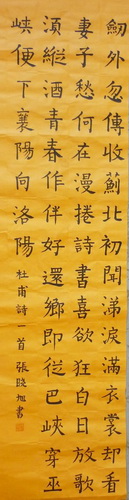 劒外忽傳收薊北初聞涕淚滿衣裳却看
妻子愁何在漫捲詩書喜欲狂白日放歌
須縱酒青春作伴好還鄉即從巴峽穿巫
峽便下襄陽向洛陽
杜甫詩一首 張曉旭書